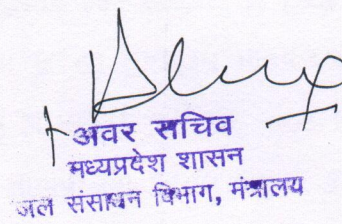 अवर सचिव
मध्यप्रदेश शासन
जल संसाधन विभाग, मंत्रालय